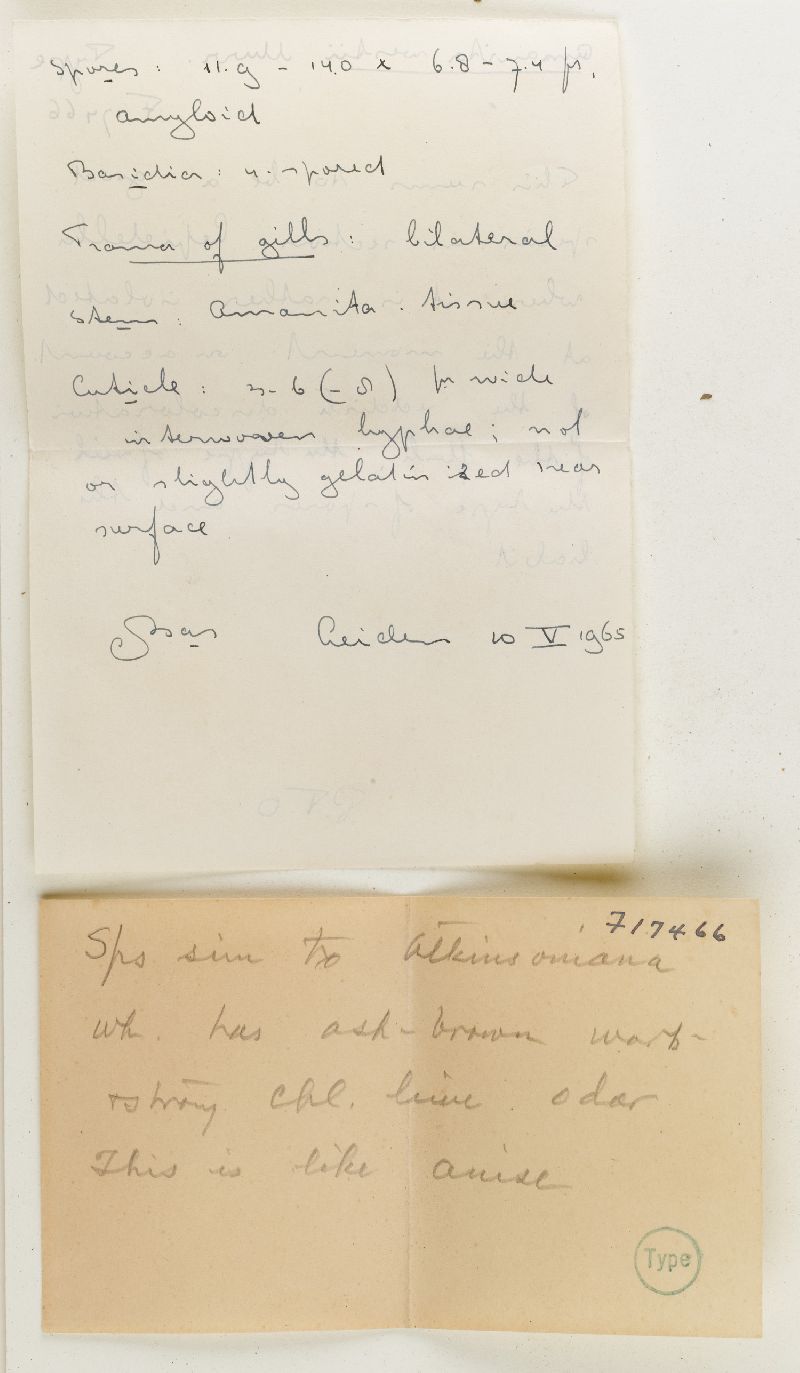 Spores : 11.9 - 14.0 x 6.8 - 7.4 µ,
amyloid
Basidia : 4-spored
Trama of gills : bilateral
Stem : Amanita-tissue
Cuticle : 3-6 (-8) µ wide
interwoven hyphae ; not
or slightly gelatinized near
surface
Bas Leiden 10 V 1965
717466
Sps sim to Atkinsoniana
wh. has ash-brown warts
+ strong chl. lime odor
This is like anise
Type